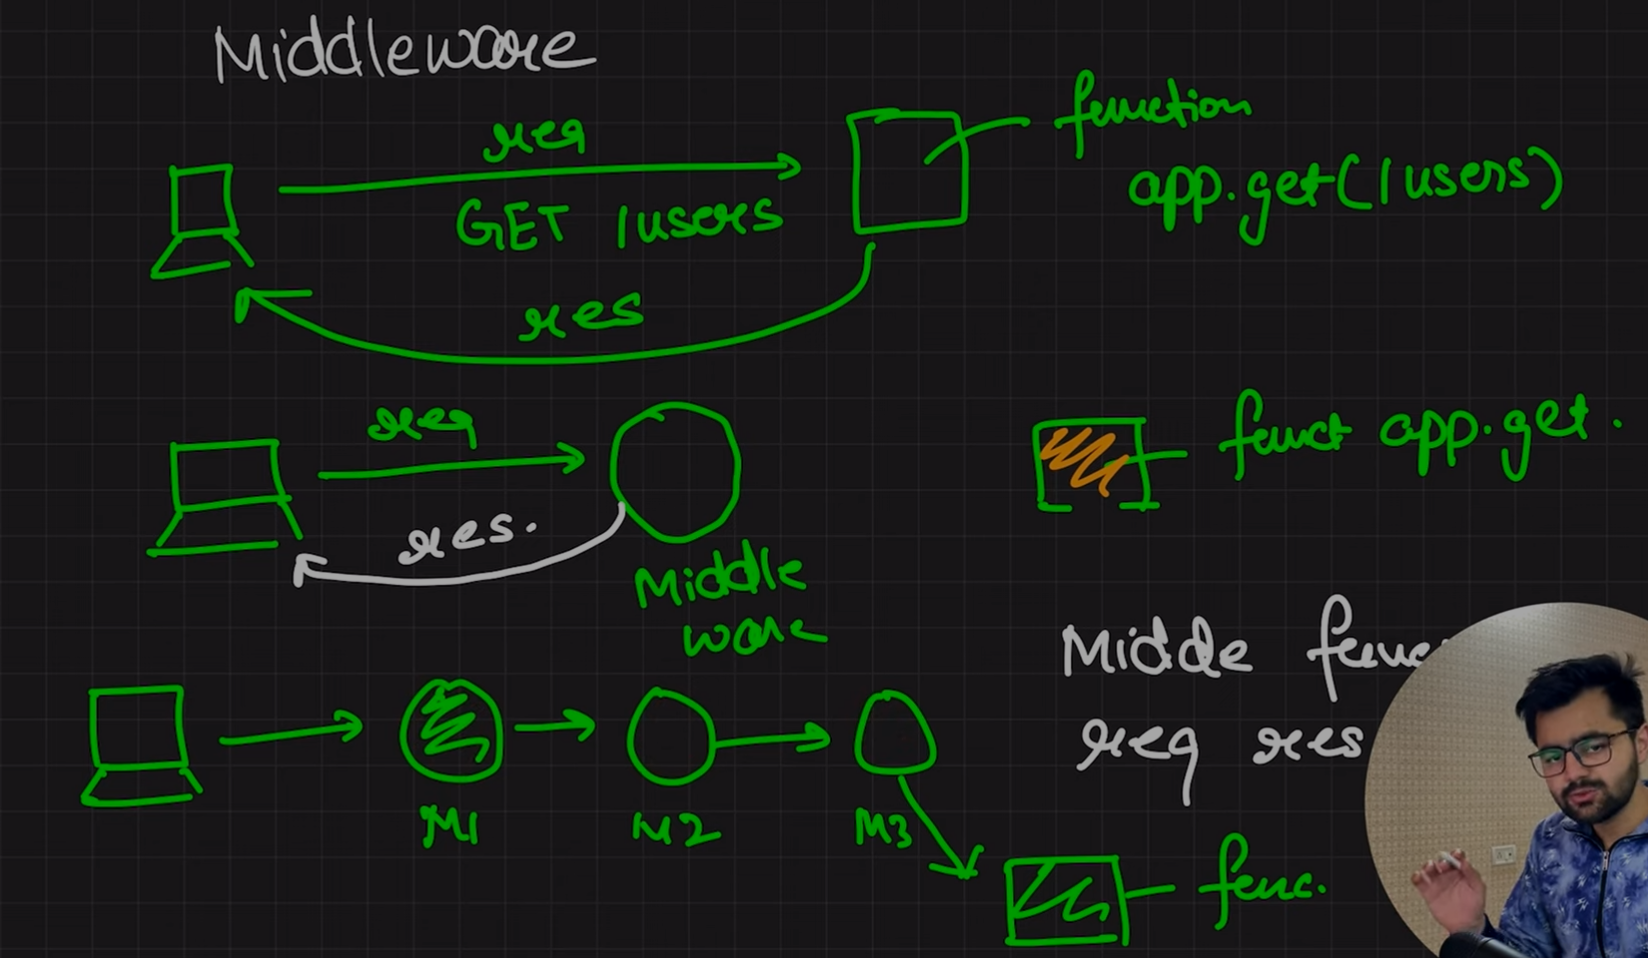 Middleware
req
GET /users
function
app.get(/users)
res
req
res.
Middle
ware
funct app.get.
Midde func
req res
M1
M2
M3
func.